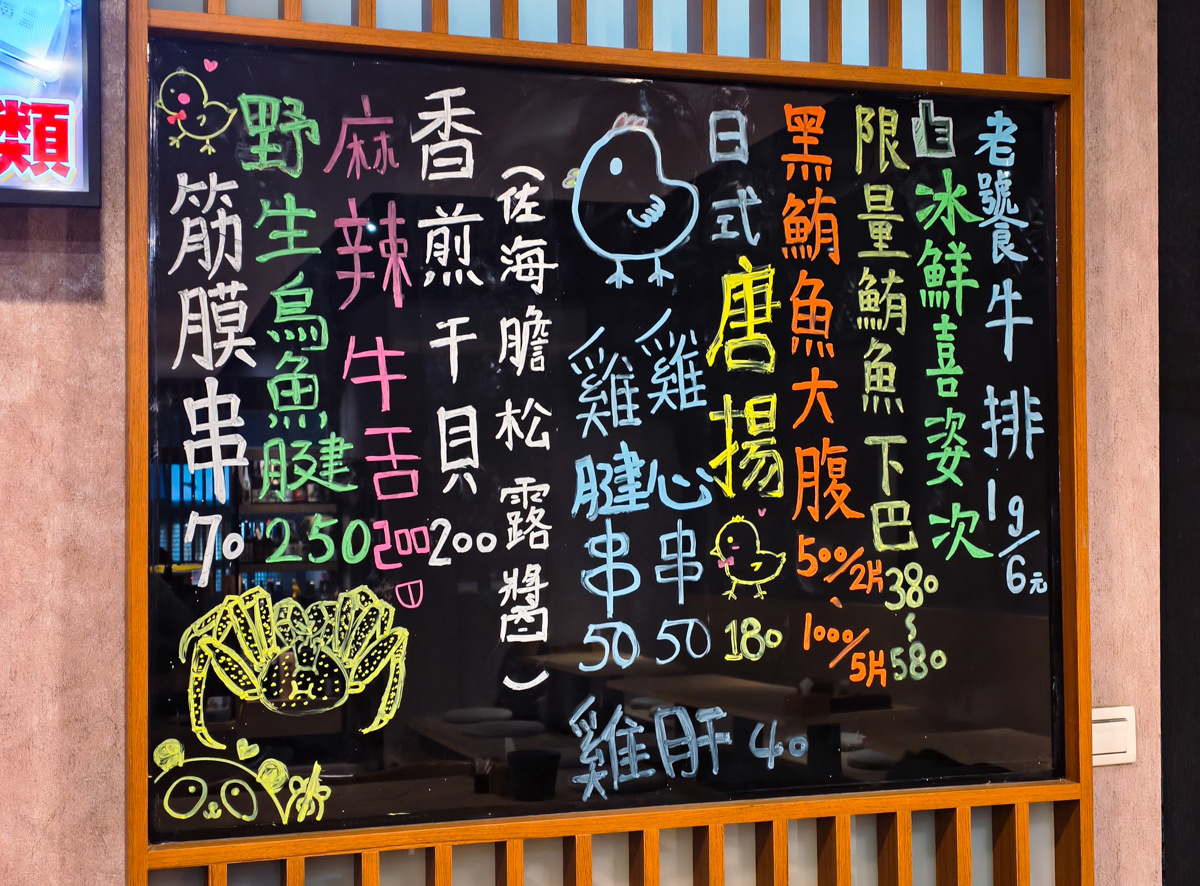 老號食牛排 1g/6元
冰鮮喜姿次
限量鮪魚下巴 380~580
黑鮪魚大腹 500/2片、1000/5片
日式唐揚 180
雞心串 50
雞腱串 50
雞肝 40
(佐海膽松露醬)
香煎干貝 200
麻辣牛舌 200
野生烏魚腱 250
筋膜串 70
類